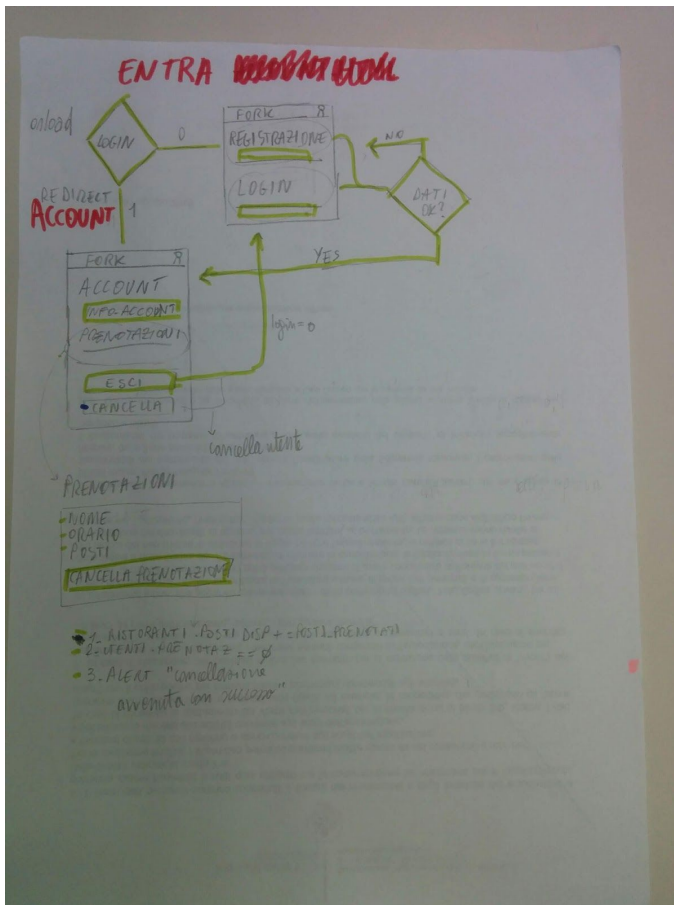 ENTRA
onload
LOGIN
0
FORK
REGISTRAZIONE
LOGIN
NO
DATI
OK?
REDIRECT
ACCOUNT
1
YES
FORK
ACCOUNT
INFO ACCOUNT
PRENOTAZIONI
ESCI
CANCELLA
login = 0
cancella utente
PRENOTAZIONI
- NOME
- ORARIO
- POSTI
CANCELLA PRENOTAZIONE
1_ RISTORANTI - POSTI DISP + = POSTI_PRENOTATI
2_ UTENTI - PRENOTAZ == ∅
3. ALERT "cancellazione
avvenuta con successo"